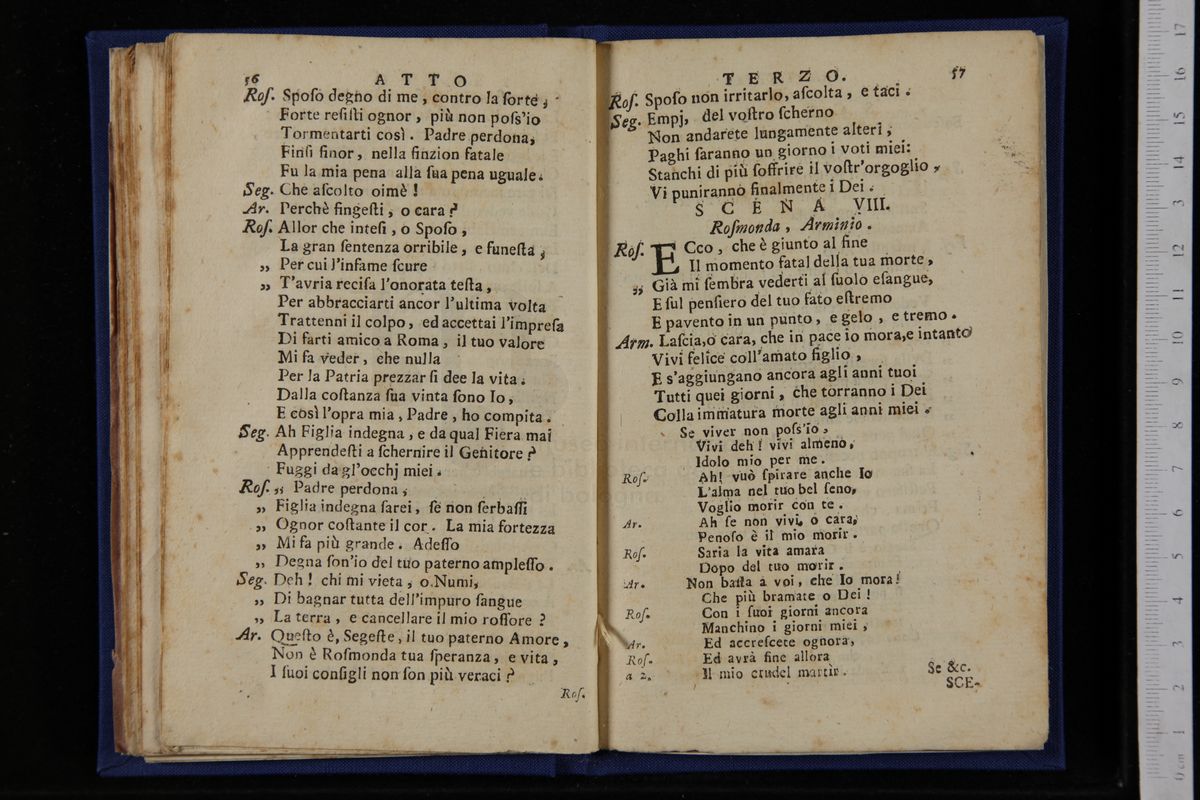 56 ATTO
Roſ. Spoſo degno di me, contro la ſorte,
Forte reſiſti ognor, più non poſs'io
Tormentarti così. Padre perdona,
Finſi finor, nella finzion fatale
Fu la mia pena alla ſua pena uguale.
Seg. Che aſcolto oimè!
Ar. Perchè fingeſti, o cara?
Roſ. Allor che inteſi, o Spoſo,
La gran ſentenza orribile, e funeſta,
„ Per cui l'infame ſcure
„ T'avria reciſa l'onorata teſta,
Per abbracciarti ancor l'ultima volta
Trattenni il colpo, ed accettai l'impreſa
Di farti amico a Roma, il tuo valore
Mi fa veder, che nulla
Per la Patria prezzar ſi dee la vita.
Dalla coſtanza ſua vinta ſono Io,
E così l'opra mia, Padre, ho compita.
Seg. Ah Figlia indegna, e da qual Fiera mai
Apprendeſti a ſchernire il Genitore?
Fuggi da gl'occhj miei.
Roſ. „ Padre perdona,
„ Figlia indegna ſarei, ſe non ſerbaſſi
„ Ognor coſtante il cor. La mia fortezza
„ Mi fa più grande. Adeſſo
„ Degna ſon'io del tuo paterno ampleſſo.
Seg. Deh! chi mi vieta, o Numi,
„ Di bagnar tutta dell'impuro ſangue
„ La terra, e cancellare il mio roſſore?
Ar. Queſto è, Segeſte, il tuo paterno Amore,
Non è Roſmonda tua ſperanza, e vita,
I ſuoi conſigli non ſon più veraci?
Roſ.
TERZO. 57
Roſ. Spoſo non irritarlo, aſcolta, e taci.
Seg. Empj, del voſtro ſcherno
Non andarete lungamente alteri,
Paghi ſaranno un giorno i voti miei:
Stanchi di più ſoffrire il voſtr'orgoglio,
Vi puniranno finalmente i Dei.
SCENA VIII.
Roſmonda, Arminio.
Roſ. ECco, che è giunto al fine
Il momento fatal della tua morte,
„ Già mi ſembra vederti al ſuolo eſangue,
E ſul penſiero del tuo fato eſtremo
E pavento in un punto, e gelo, e tremo.
Arm. Laſcia, o cara, che in pace io mora, e intanto
Vivi felice coll'amato figlio,
E s'aggiungano ancora agli anni tuoi
Tutti quei giorni, che torranno i Dei
Colla immatura morte agli anni miei.
Se viver non poſs'io,
Vivi deh! vivi almeno,
Idolo mio per me.
Roſ. Ah! vuò ſpirare anche Io
L'alma nel tuo bel ſeno,
Voglio morir con te.
Ar. Ah ſe non vivi, o cara,
Penoſo è il mio morir.
Roſ. Saria la vita amara
Dopo del tuo morir.
Ar. Non baſta a voi, che Io mora!
Che più bramate o Dei!
Roſ. Con i ſuoi giorni ancora
Manchino i giorni miei,
Ar. Ed accreſcete ognora,
Roſ. Ed avrà fine allora
a 2. Il mio crudel martir. Se &c.
SCE-